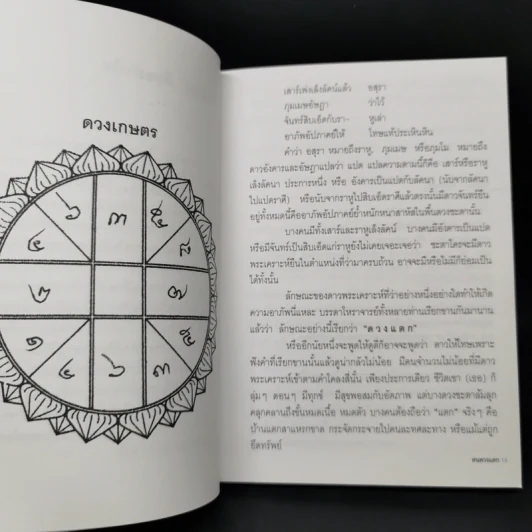 ดวงเกษตร
๖ ๓ ๕
๔ ๘
๒ ๗
๑ ๕
๔ ๖ ๓
เสาร์เพ่งเล็งลัคน์แล้ว อสุรา
ภุมเมษอัษฎา ว่าไว้
จันทร์สิบเอ็ดกับรา- หูเล่า
อาภัพอัปภาคย์ให้ โทษแท้ประเหินหืน
คำว่า อสุรา หมายถึงราหู, ภุมเมษ หรือภุมโม หมายถึง
ดาวอังคารและอัษฎาแปลว่า แปด แปลความตามนี้ก็คือ เสาร์หรือราหู
เล็งลัคนา ประการหนึ่ง หรือ อังคารเป็นแปดกับลัคนา (นับจากลัคนา
ไปแปดราศี) หรือนับจากราหูไปสิบเอ็ดราศีแล้วตรงนั้นมีดาวจันทร์ยืน
อยู่ทั้งหมดนี้คืออาภัพอัปภาคย์ย้ำหนักหนาสาหัสในพื้นดวงชะตานั้น
บางคนมีทั้งเสาร์และราหูเล็งลัคน์ บางคนมีอังคารเป็นแปด
หรือมีจันทร์เป็นสิบเอ็ดแก่ราหูยังไม่เคยเจอะเจอว่า ชะตาใครจะมีดาว
พระเคราะห์ยืนในตำแหน่งที่ว่ามาครบถ้วน อาจจะมีหรือไม่มีก็ย่อมเป็น
ได้ทั้งนั้น
ลักษณะของดาวพระเคราะห์ที่ว่าอย่างหนึ่งอย่างใดทำให้เกิด
ความอาภัพนี่แหละ บรรดาโหราจารย์ทั้งหลายท่านเรียกขานกันมานาน
แล้วว่า ลักษณะอย่างนี้เรียกว่า "ดวงแตก"
หรืออีกนัยหนึ่งจะพูดให้ดูดีก็อาจจะพูดว่า ดาวให้โทษเพราะ
ฟังคำที่เรียกขานนั้นแล้วดูน่ากลัวไม่น้อย มีคนจำนวนไม่น้อยที่มีดาว
พระเคราะห์เข้าตามคำโคลงสี่นั้น เพียงประการเดียว ชีวิตเขา (เธอ) ก็
ลุ่มๆ ดอนๆ มีทุกข์ มีสุขพอสมกับอัตภาพ แต่บางดวงชะตาล้มลุก
คลุกคลานถึงขั้นหมดเนื้อ หมดตัว บางคนต้องถือว่า "แตก" จริงๆ คือ
บ้านแตกสาแหรกขาด กระจัดกระจายไปคนละทิศละทาง หรือแม้แต่ถูก
ยึดทรัพย์
คนดวงแตก